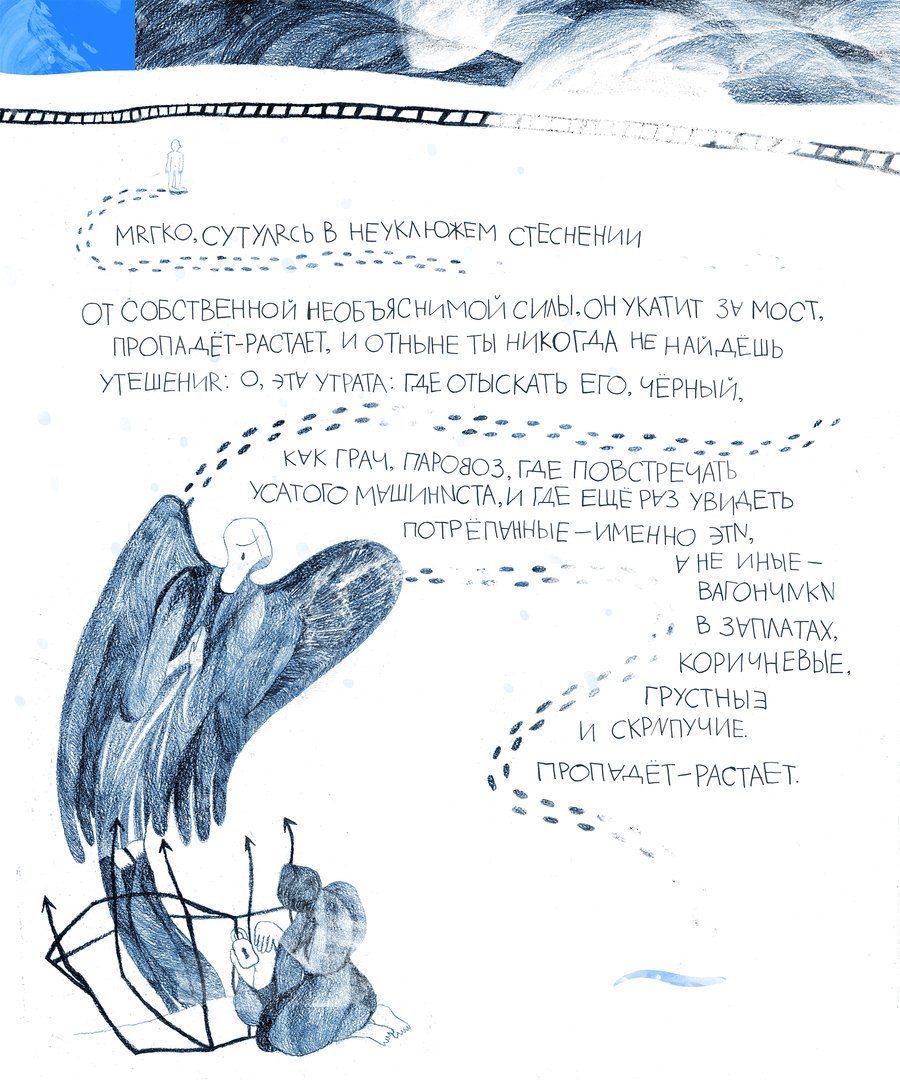 МЯГКО, СУТУЛЯСЬ В НЕУКЛЮЖЕМ СТЕСНЕНИИ
ОТ СОБСТВЕННОЙ НЕОБЪЯСНИМОЙ СИЛЫ, ОН УКАТИТ ЗА МОСТ,
ПРОПАДЁТ-РАСТАЕТ, И ОТНЫНЕ ТЫ НИКОГДА НЕ НАЙДЁШЬ
УТЕШЕНИЯ: О, ЭТА УТРАТА: ГДЕ ОТЫСКАТЬ ЕГО, ЧЁРНЫЙ,
КАК ГРАЧ, ПАРОВОЗ, ГДЕ ПОВСТРЕЧАТЬ
УСАТОГО МАШИНИСТА, И ГДЕ ЕЩЁ РАЗ УВИДЕТЬ
ПОТРЁПАННЫЕ — ИМЕННО ЭТИ,
А НЕ ИНЫЕ —
ВАГОНЧИКИ
В ЗАПЛАТАХ,
КОРИЧНЕВЫЕ,
ГРУСТНЫЕ
И СКРИПУЧИЕ.
ПРОПАДЁТ — РАСТАЕТ.